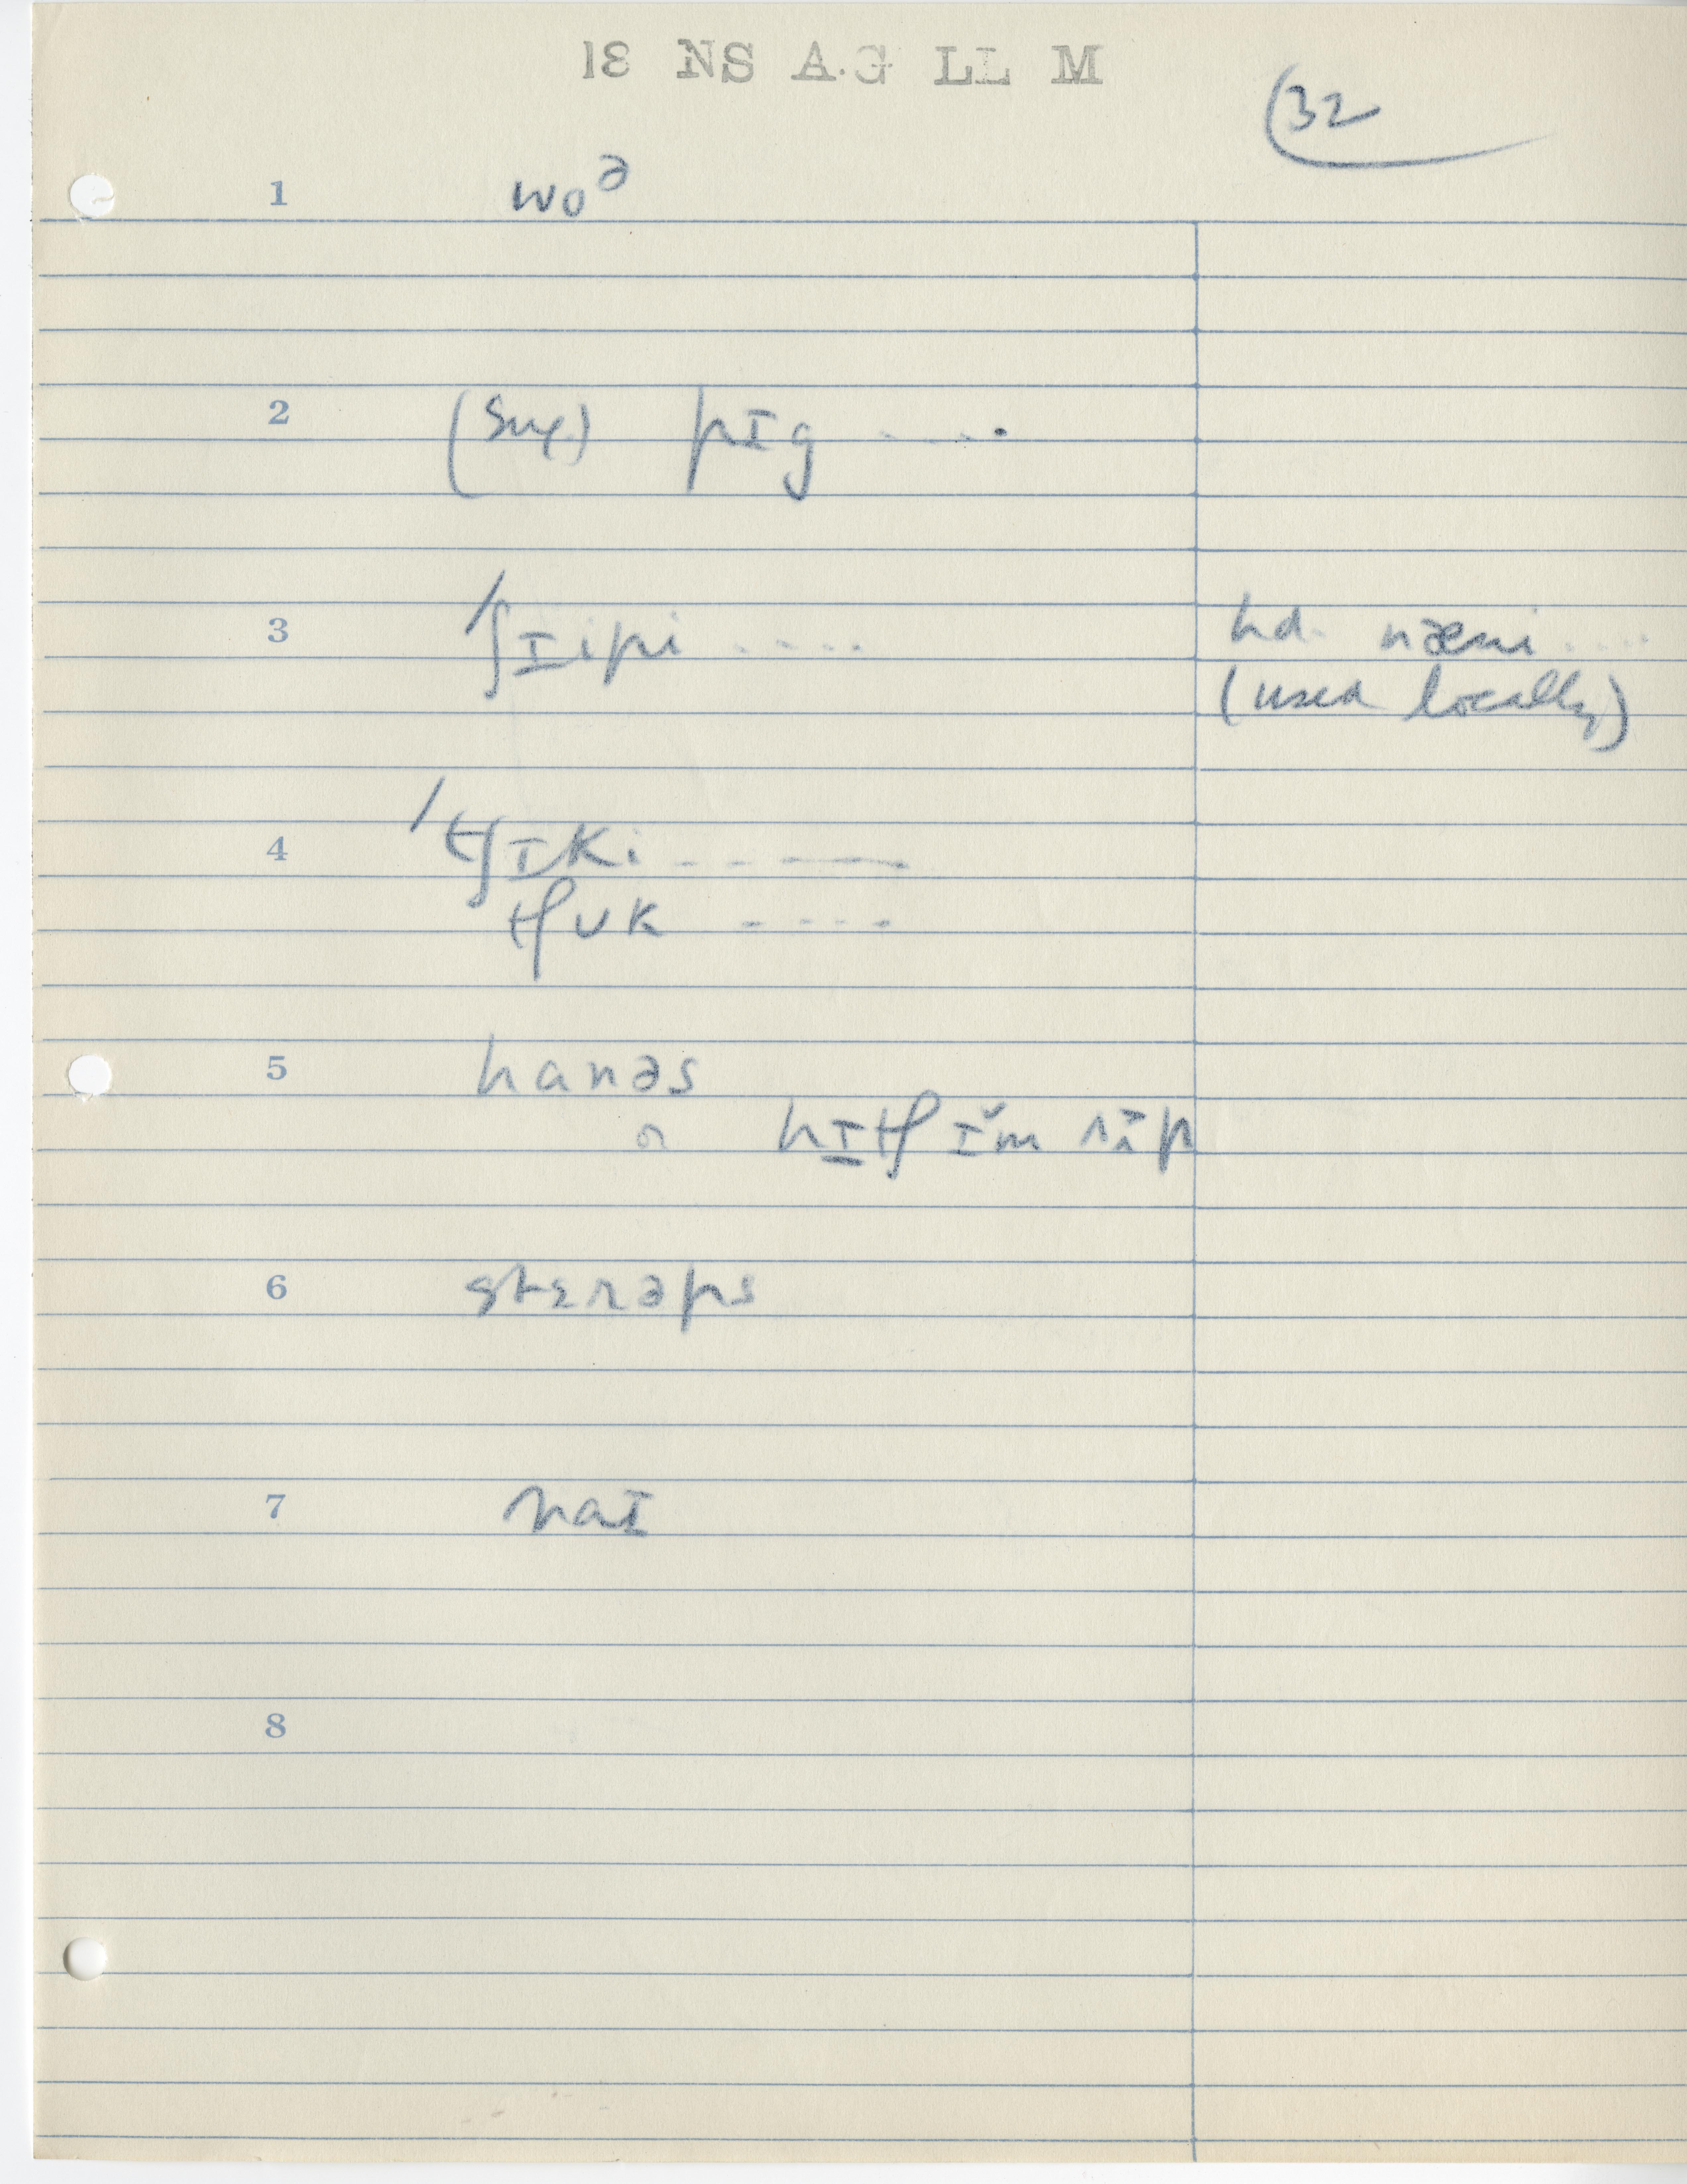 18 NS A.G LL M
(32
1 woᵊ
2 (Sug.) pɪg ....
3 /ʃɪipi .... hd. næni ....
(used locally)
4 /tʃɪki - - - —
tʃʊk - - - -
5 hanəs
or hɪtʃ ɪ̆m
6 stɛrəps
7 naɪ
8